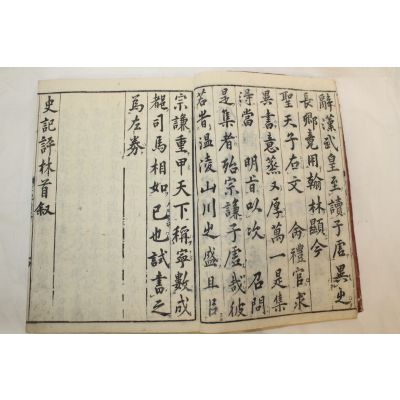 辭漢武皇至讀子虛異之
長卿竟用翰林顯今
聖天子右文 命禮官求
異書意蒸又厚萬一是集
得當 明旨以次 召問
是集者殆宗謙子虛哉彼
若昔溫陵山川之盛且
宗謙重甲天下稱寧數成
都司馬相如已也試書之
為左券
史記評林首叙